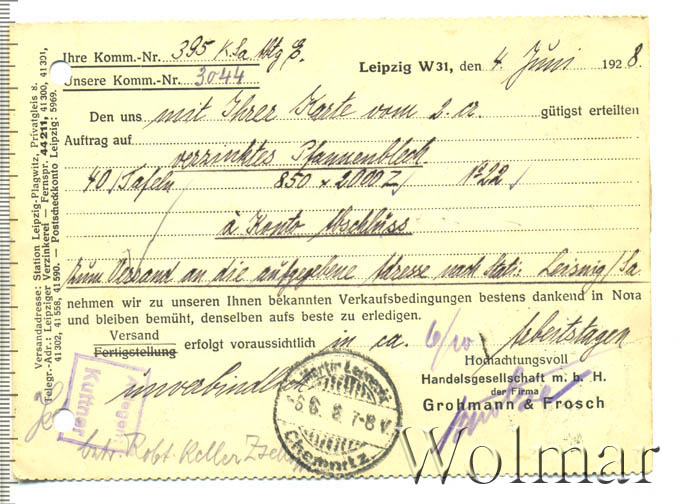 Versandadresse: Station Leipzig-Plagwitz, Privatgleis 8.
Telegr.-Adr.: Leipziger Verzinkerei – Fernspr. 44 211, 41 300, 41 301,
41 302, 41 558, 41 590. – Postscheckkonto Leipzig: 5969.
Ihre Komm.-Nr. 395 K.Sa Abtg E.
Unsere Komm.-Nr. 3044
Leipzig W 31, den 4. Juni 1928.
Den uns mit Ihrer Karte vom 2. cr. gütigst erteilten
Auftrag auf
verzinktes Pfannenblech
40 Tafeln 850 x 2000 No 22
à Konto Abschluss
zum Versand an die aufgegebene Adresse nach Stat: Leisnig/Sa
nehmen wir zu unseren Ihnen bekannten Verkaufsbedingungen bestens dankend in Nota
und bleiben bemüht, denselben aufs beste zu erledigen.
Versand
Fertigstellung erfolgt voraussichtlich in ca. 6/10 Arbeitstagen
unverbindlich
Hochachtungsvoll
Handelsgesellschaft m. b. H.
der Firma
Grohmann & Frosch
Kuttner
-6.6. 8. 7-8 V.
Chemnitz.
betr. Robt. Keller
Wolmar